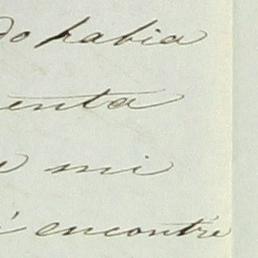 do habia
enta
mi
encontré